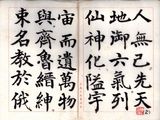 人無己先天
地御六氣列
仙神化隘宇
宙而遺萬物
與齊魯縉紳
東名教於俄